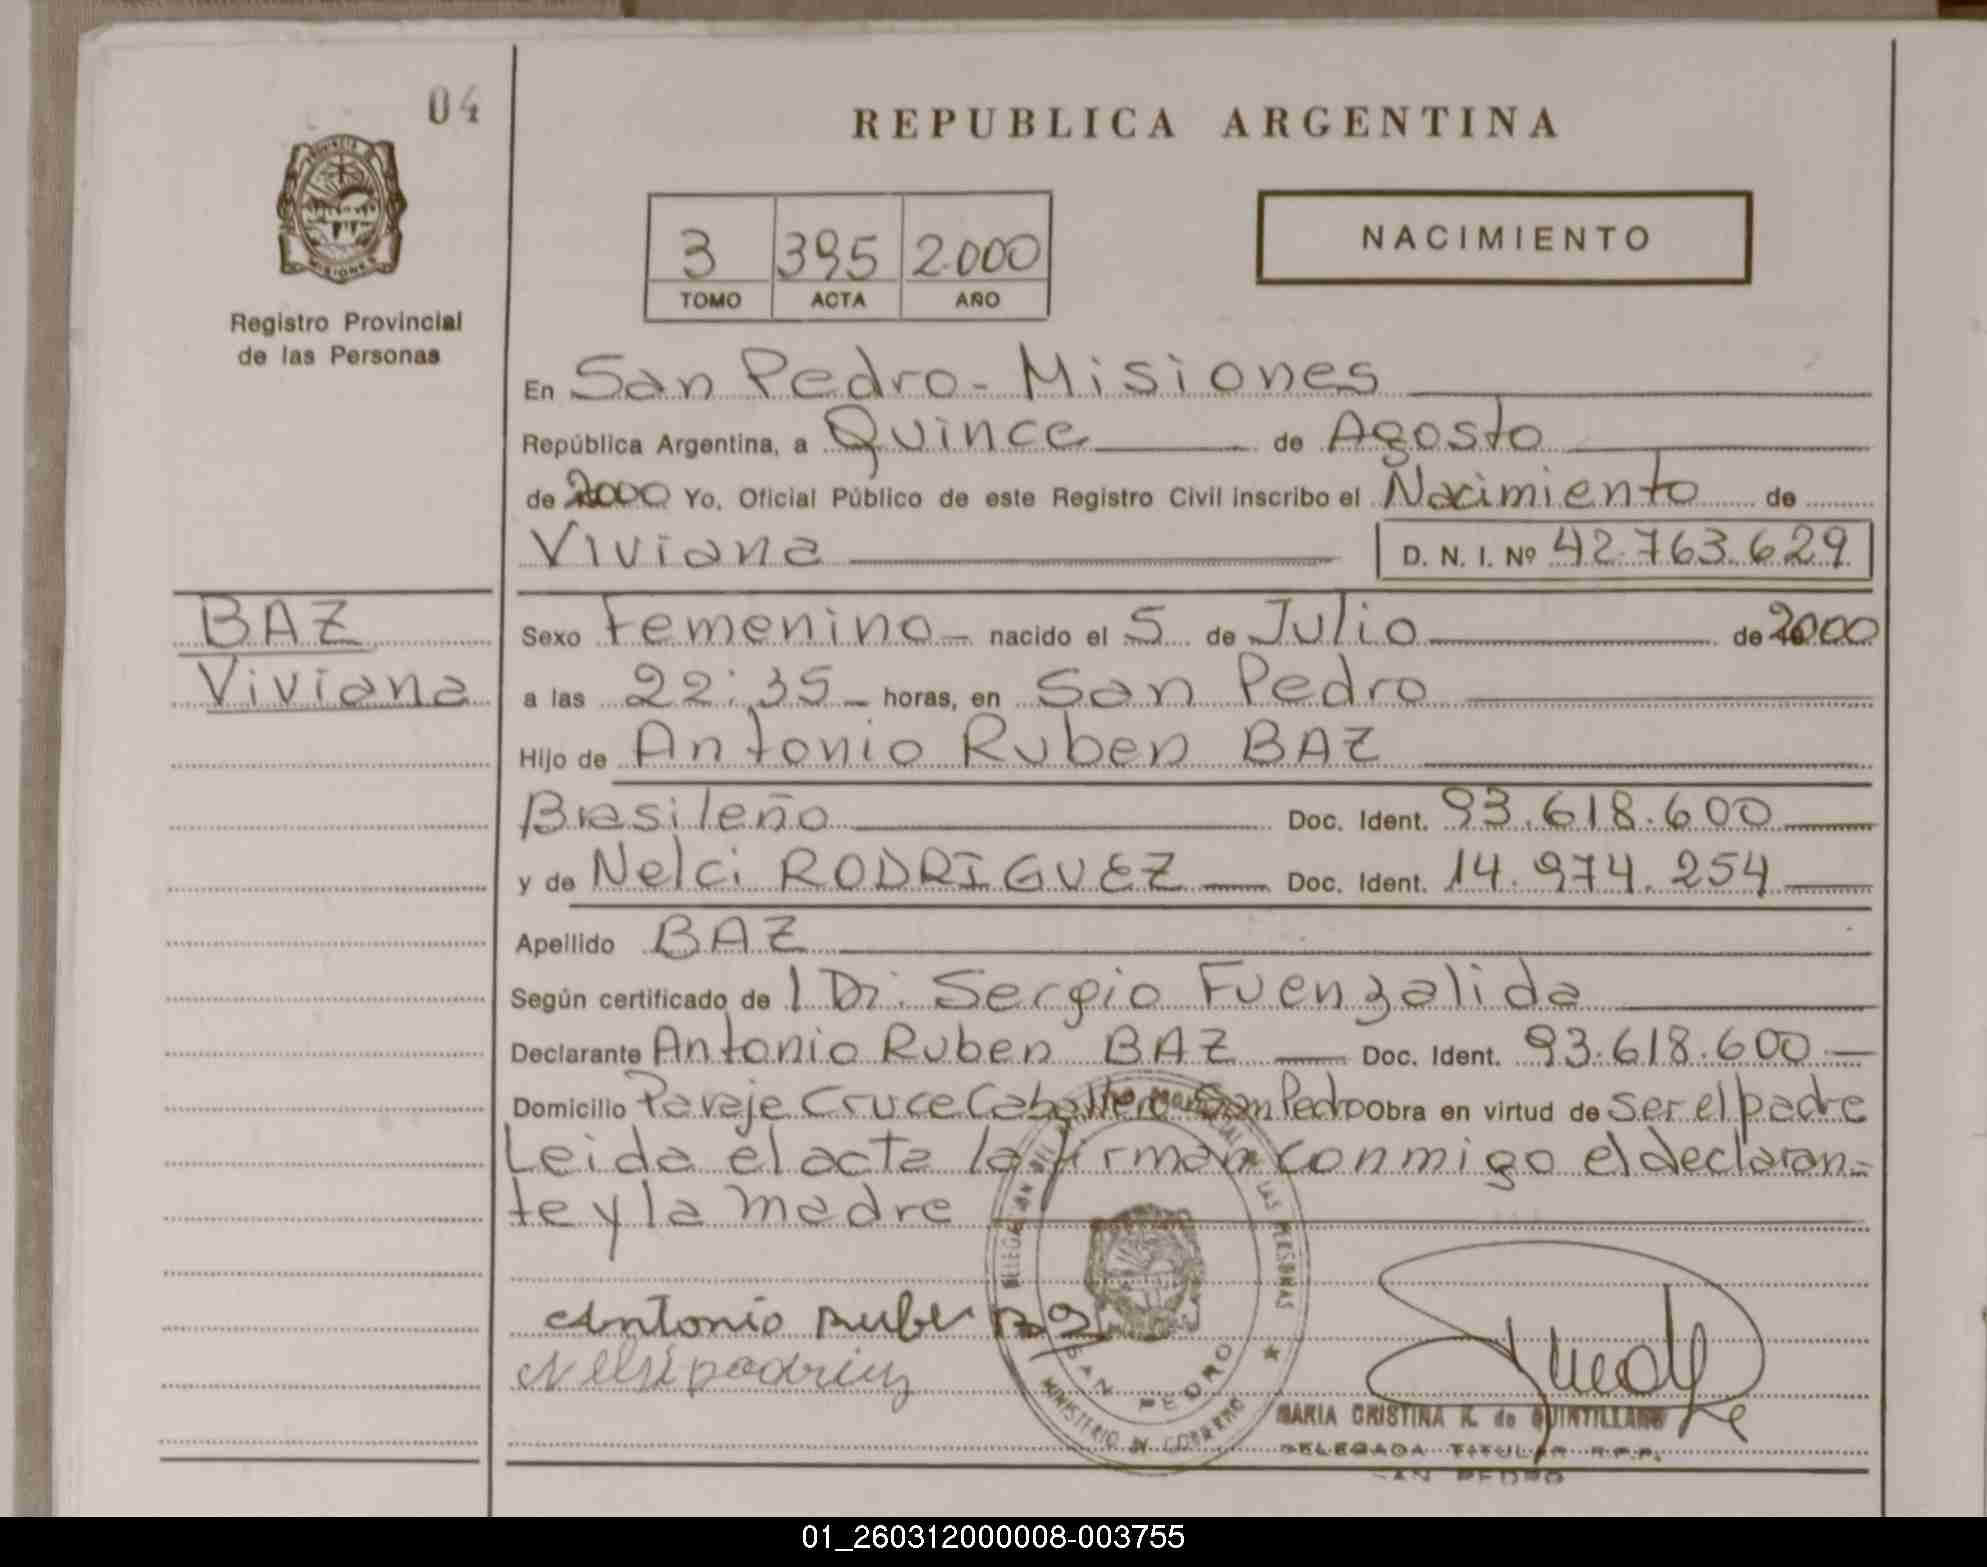 04
REPUBLICA ARGENTINA
PROVINCIA DE
MISIONES
Registro Provincial
de las Personas
3 395 2.000
TOMO ACTA AÑO
NACIMIENTO
En San Pedro - Misiones
República Argentina, a Quince de Agosto
de 2000 Yo, Oficial Público de este Registro Civil inscribo el Nacimiento de
Viviana D. N. I. Nº 42.763.629
BAZ
Viviana
Sexo Femenino nacido el 5 de Julio de 2000
a las 22:35 horas, en San Pedro
Hijo de Antonio Ruben BAZ
Brasileño Doc. Ident. 93.618.600
y de Nelci RODRIGUEZ Doc. Ident. 14.974.254
Apellido BAZ
Según certificado de l Dr. Sergio Fuenzalida
Declarante Antonio Ruben BAZ Doc. Ident. 93.618.600
Domicilio Paraje Cruce Caballero San Pedro Obra en virtud de ser el padre
Leida el acta la firman conmigo el declaran-
te y la madre
Antonio Ruben
SAN PEDRO
MINISTERIO DE GOBIERNO
MARIA CRISTINA K. de QUINTILLANO
DELEGADA TITULAR R.P.P.
SAN PEDRO
01_260312000008-003755